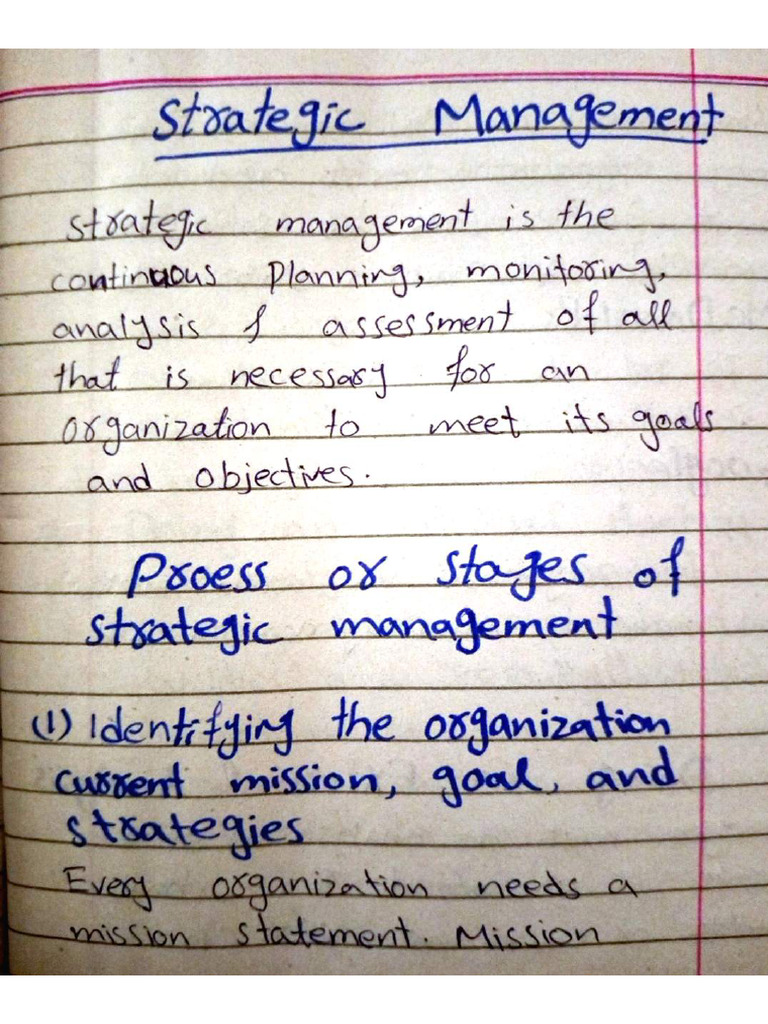 Strategic Management
Strategic management is the
continuous planning, monitoring,
analysis & assessment of all
that is necessary for an
organization to meet its goals
and objectives.
Proess or stages of
strategic management
(1) Identifying the organization
current mission, goal, and
strategies
Every organization needs a
mission statement. Mission